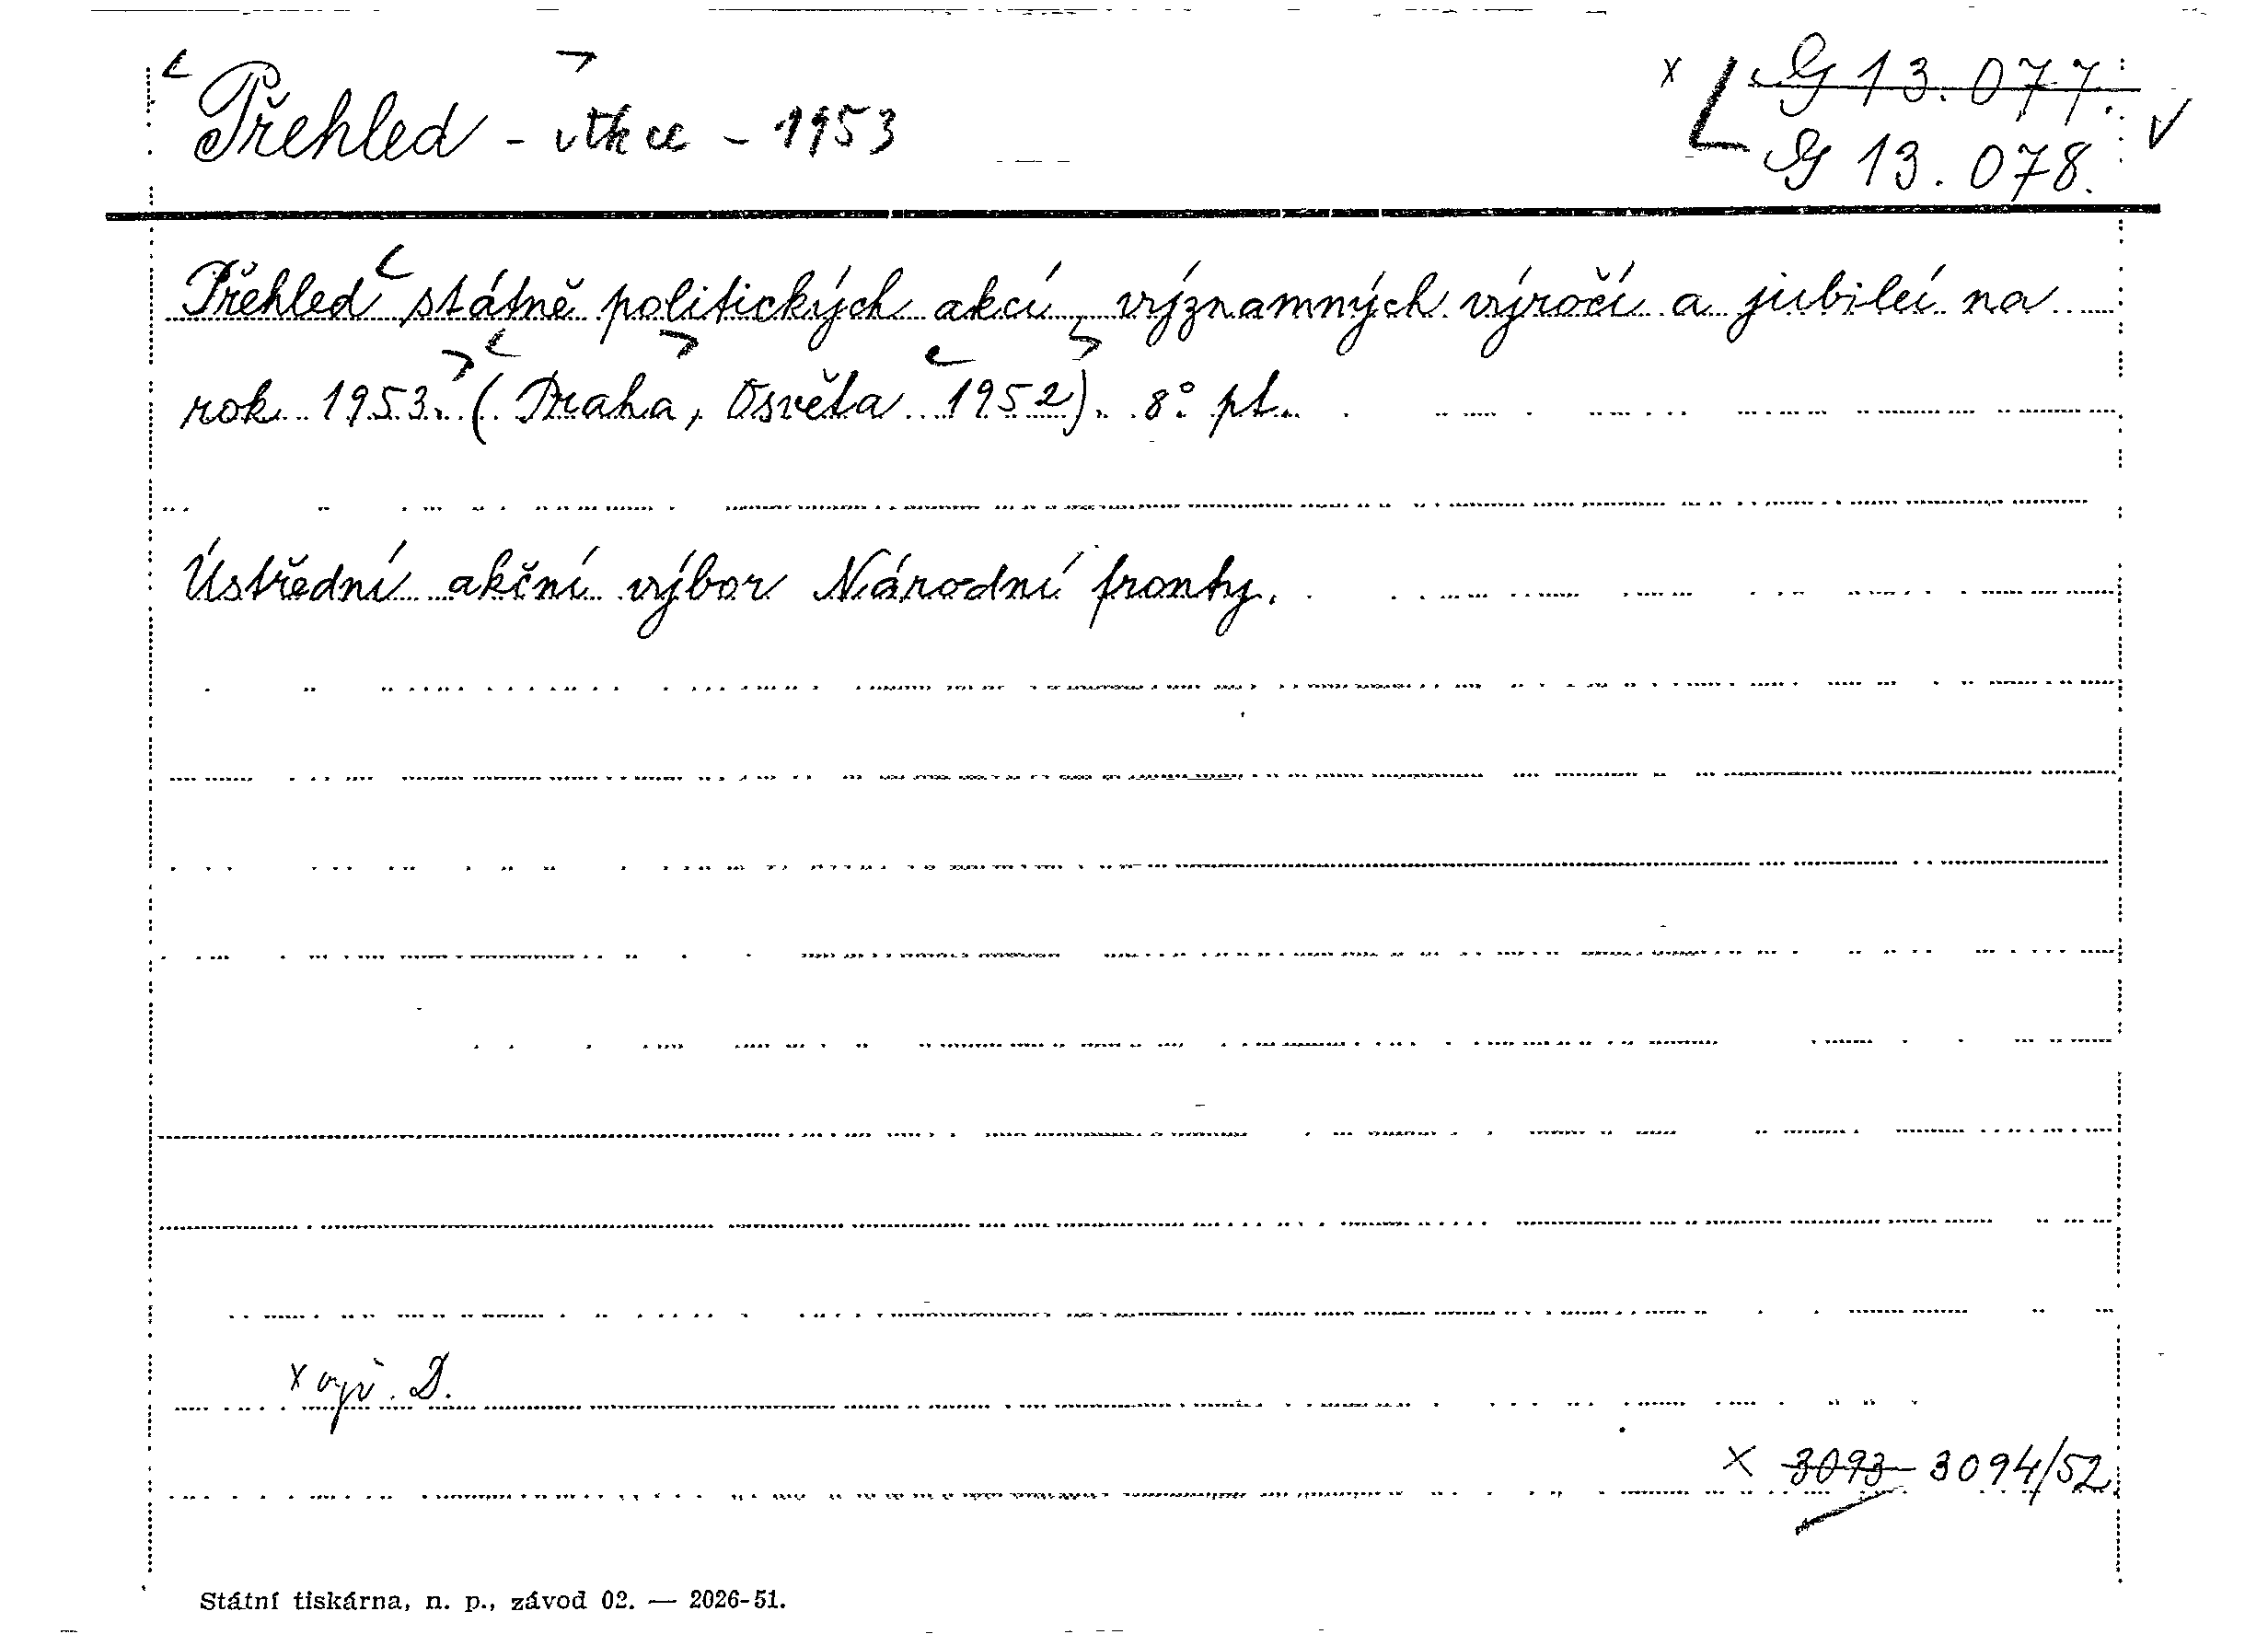 Přehled - - 1953
x G 13.077.
G 13.078. ✓
Přehled státně politických akcí, významných výročí a jubileí na
rok 1953. (Praha, Osvěta 1952). 8° pt.
Ústřední akční výbor Národní fronty.
x D.
x 3093 3094/52.
Státní tiskárna, n. p., závod 02. — 2026-51.